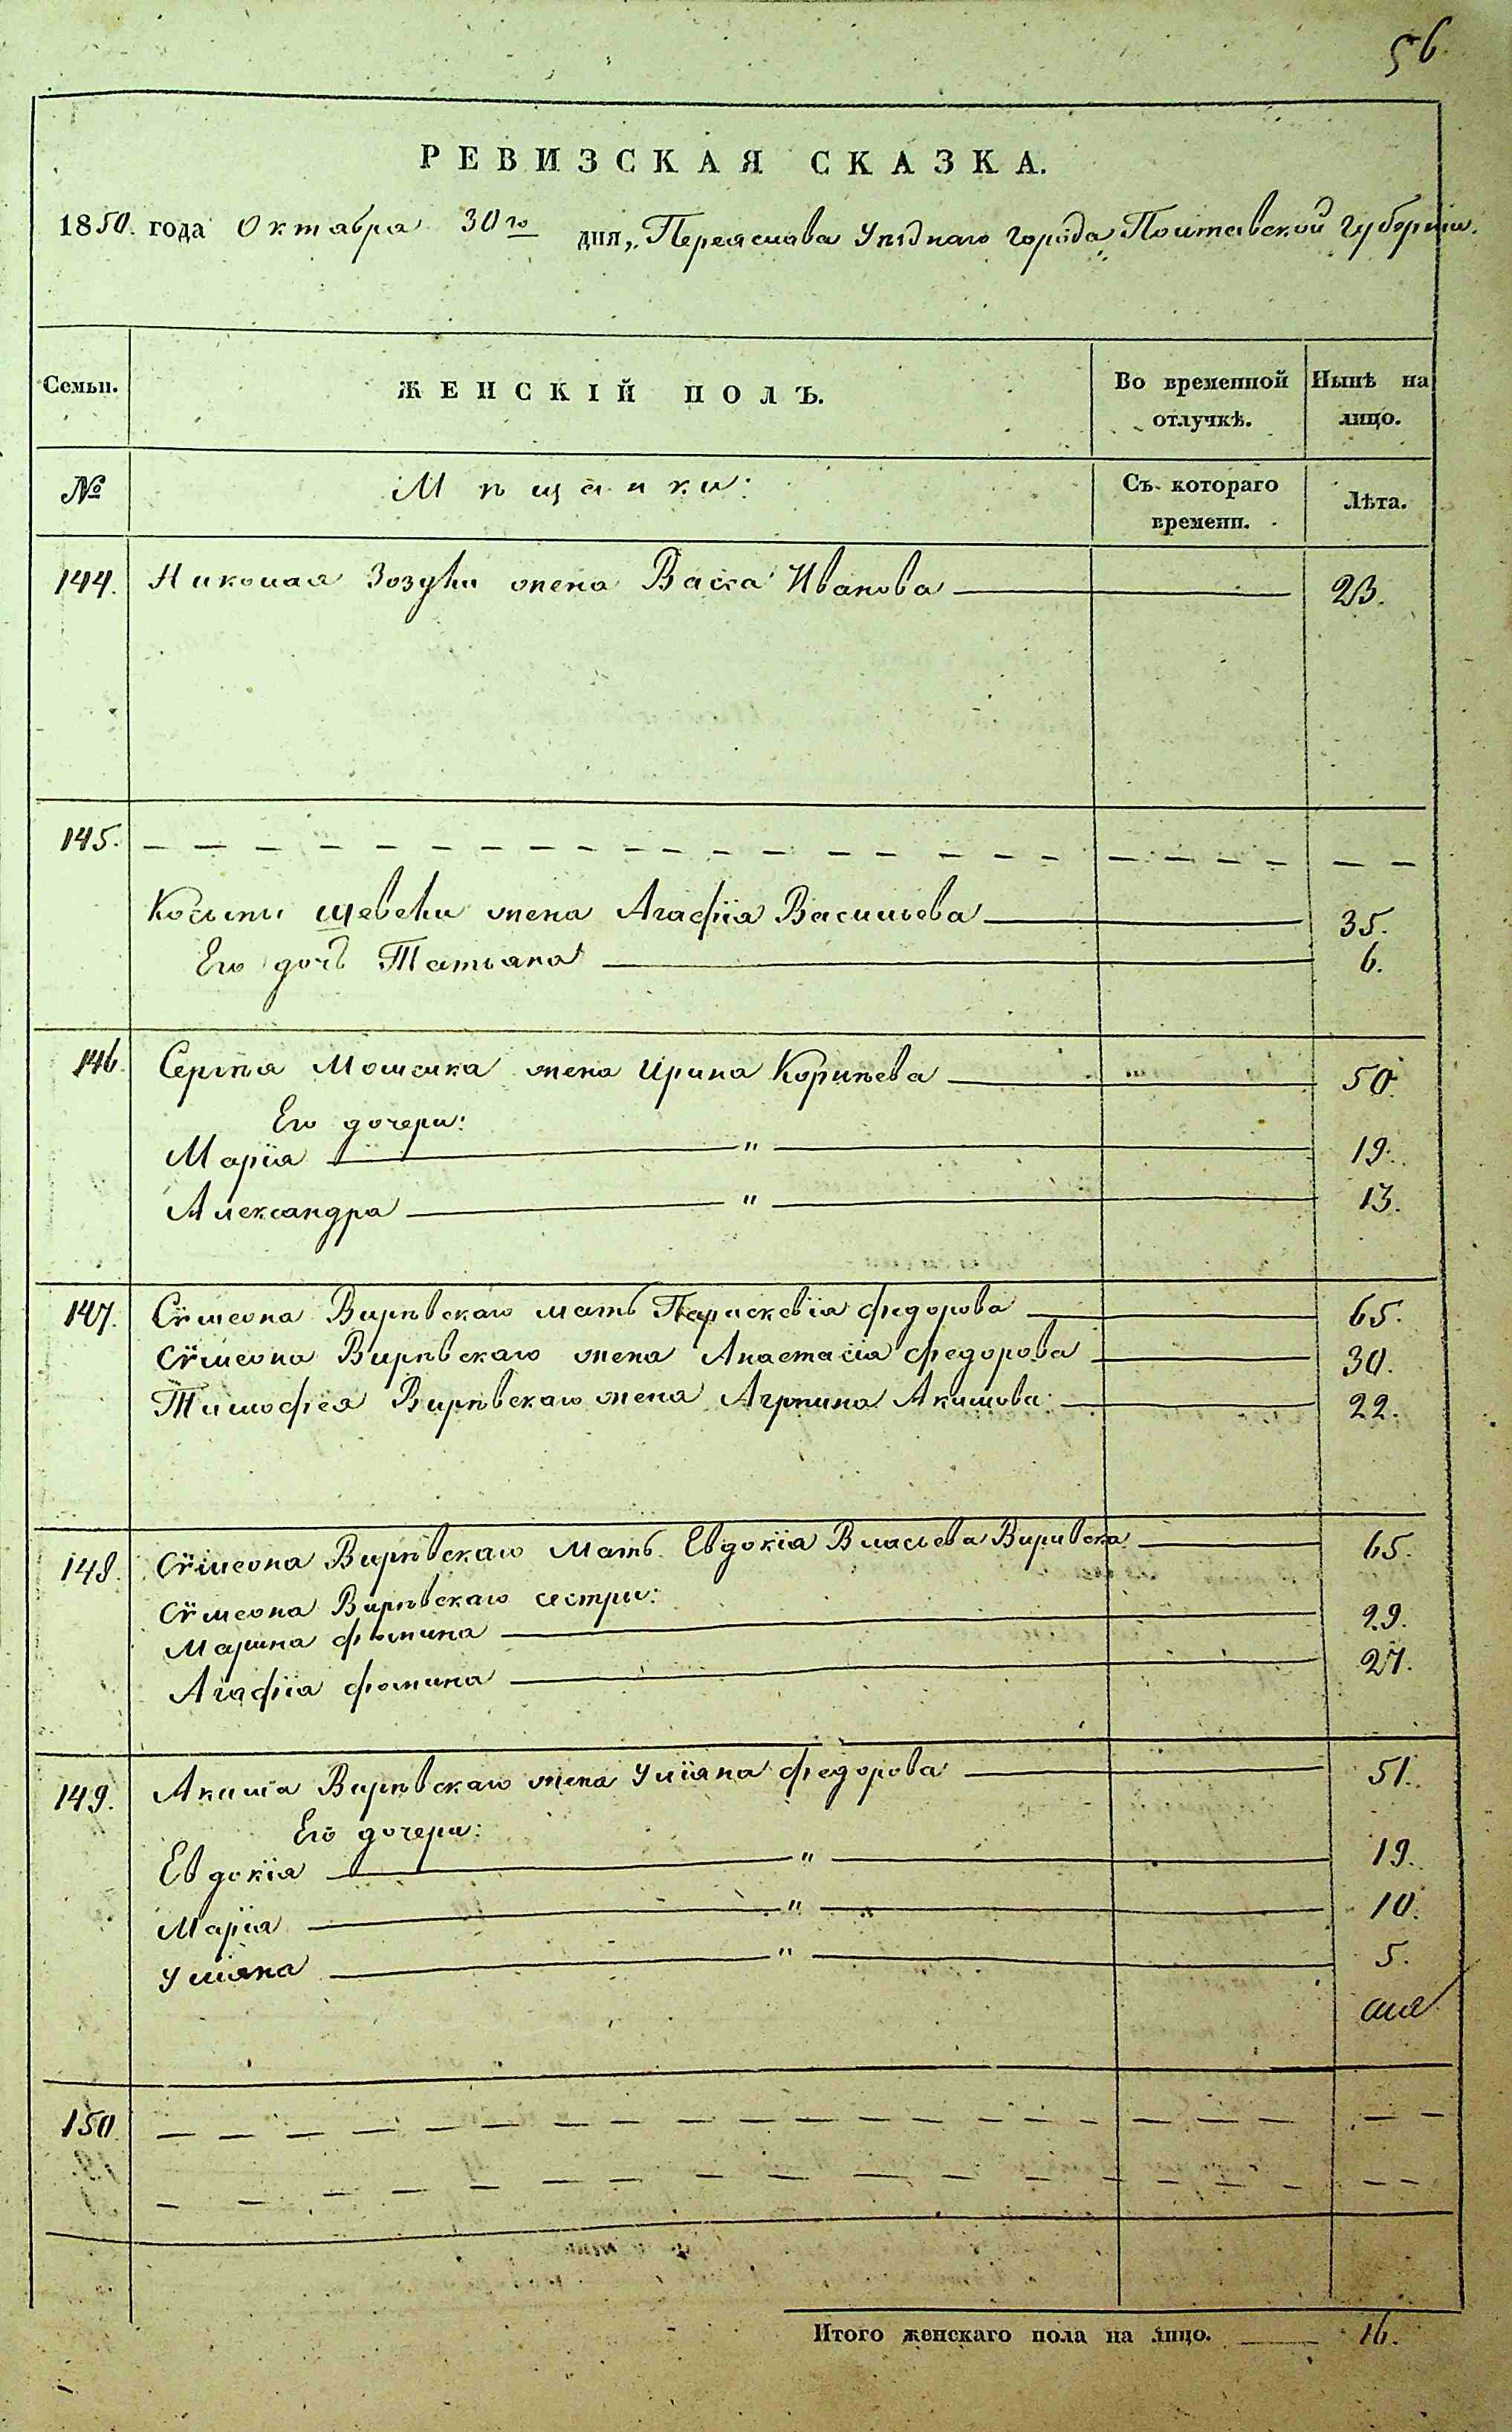 56.
РЕВИЗСКАЯ СКАЗКА.
1850. года Октября 30го дня, Переяслава Уѣзднаго города Полтавской Губерніи.
Семьи. ЖЕНСКІЙ ПОЛЪ. Во временной отлучкѣ. Нынѣ на лицо.
№ Мѣщанки: Съ котораго времени. Лѣта.
144. Николая Зозули жена Васса Иванова 23.
145.
Косьмы Шевели жена Агафія Васильева 35.
Его дочь Татьяна 6.
146. Сергѣя жена Ирина Корнѣева 50.
Его дочери:
Марія " 19.
Александра " 13.
147. Сѵмеона Вирѣвскаго мать Параскевія Федорова 65.
Сѵмеона Вирѣвскаго жена Анастасія Федорова 30.
Тимофея Вирѣвскаго жена Агрпина Акимова 22.
148. Сѵмеона Вирѣвскаго мать Евдокія Власьева Виривска 65.
Сѵмеона Вирѣвскаго сестри:
Марина Фомина 29.
Агафія Фомина 27.
149. Акима Вирѣвскаго жена Уліяна Федорова 51.
Его дочери:
Евдокія " 19.
Марія " 10.
Уліяна " 5.
150
Итого женскаго пола на лицо. 16.